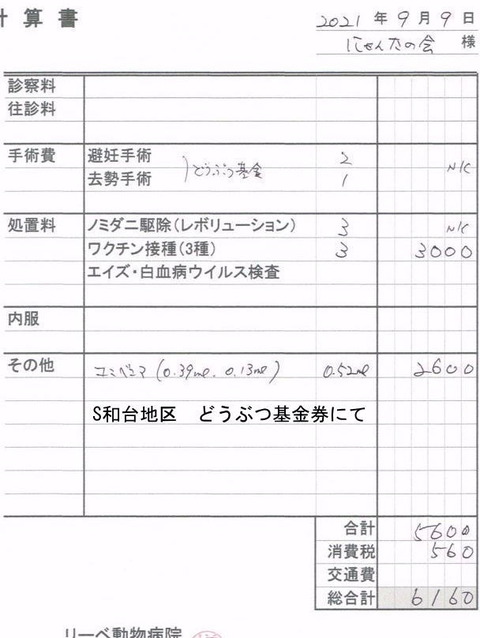 計算書
2021年9月9日
にゃんたの会 様
診察料
往診料
手術費 避妊手術 2
どうぶつ基金 N/C
去勢手術 1
処置料 ノミダニ駆除(レボリューション) 3 N/C
ワクチン接種(3種) 3 3000
エイズ・白血病ウイルス検査
内服
その他 コンベニア (0.39ml, 0.13ml) 0.52ml 2600
S和台地区 どうぶつ基金券にて
合計 5600
消費税 560
交通費
総合計 6160
リーベ動物病院